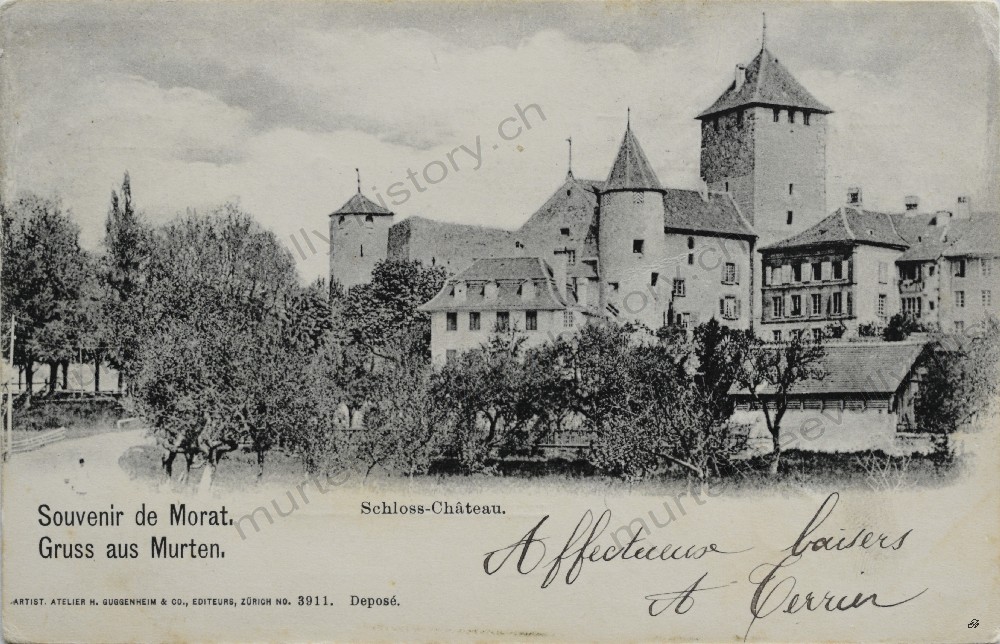 Schloss-Château.
Souvenir de Morat.
Gruss aus Murten.
Affectueuse baisers
A Perrin
ARTIST. ATELIER H. GUGGENHEIM & CO., EDITEURS, ZÜRICH NO. 3911. Deposé.